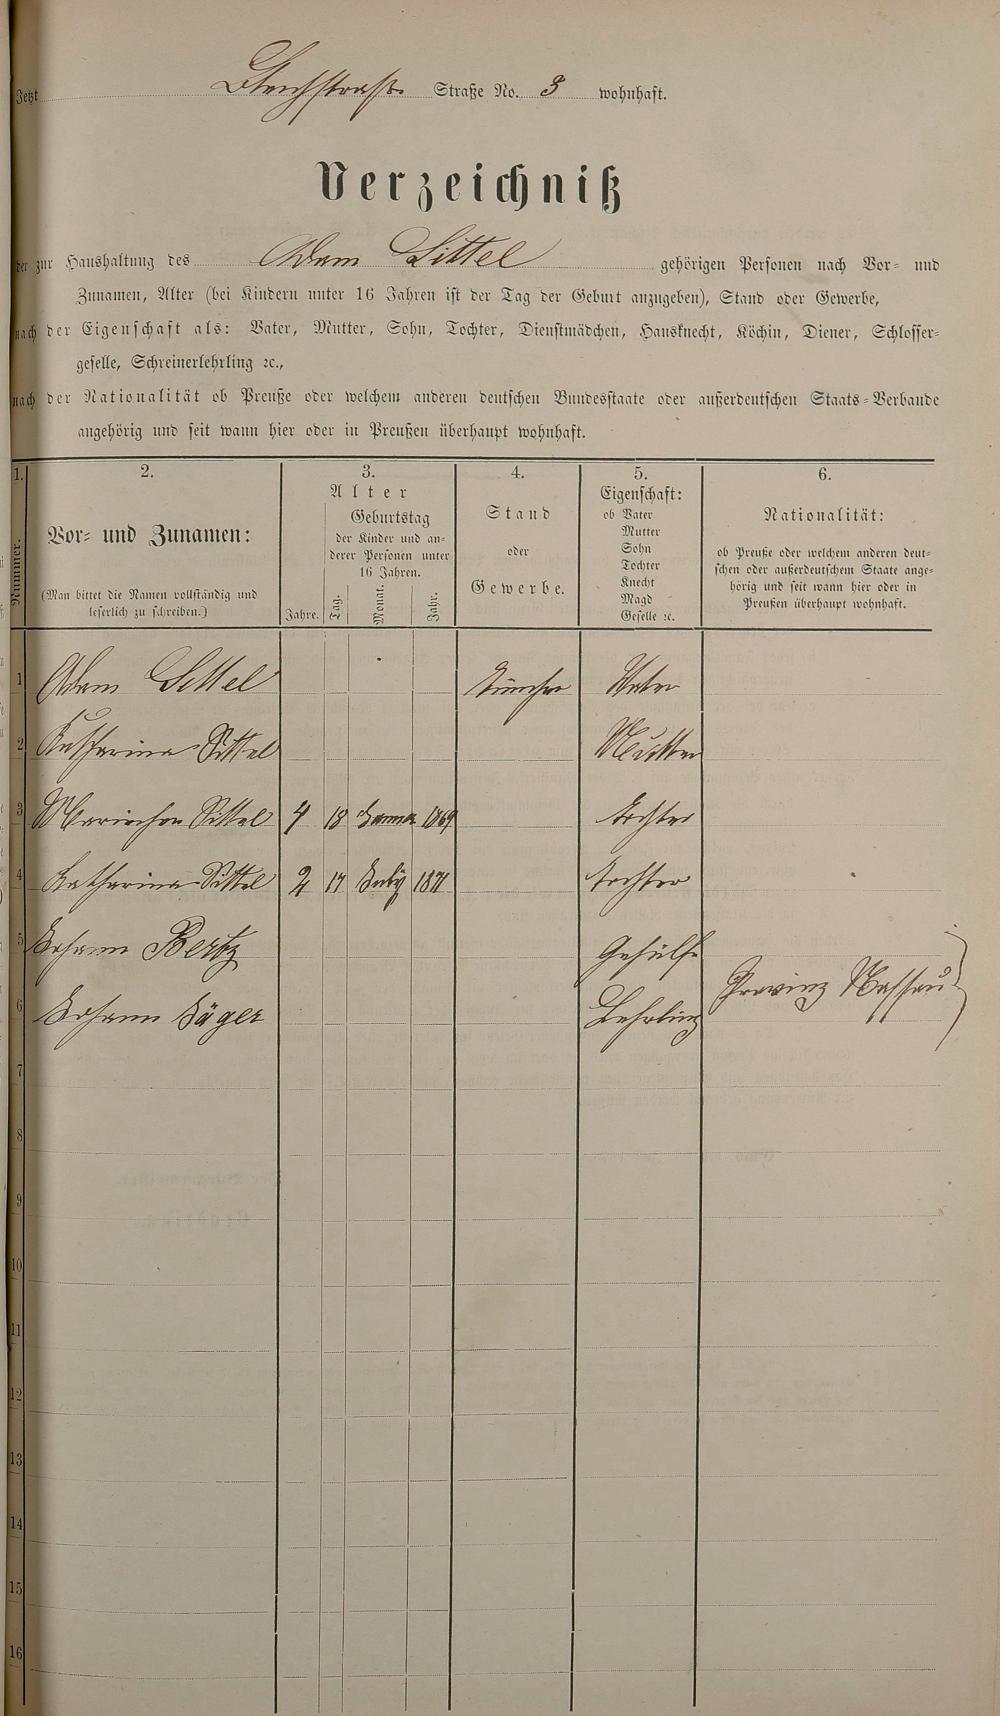 Jetzt Bleichstraße Straße No. 3 wohnhaft.
Verzeichniß
der zur Haushaltung des Adam Sittel gehörigen Personen nach Vor- und
Zunamen, Alter (bei Kindern unter 16 Jahren ist der Tag der Geburt anzugeben), Stand oder Gewerbe,
nach der Eigenschaft als: Vater, Mutter, Sohn, Tochter, Dienstmädchen, Hausknecht, Köchin, Diener, Schlosser-
geselle, Schreinerlehrling ꝛc.,
nach der Nationalität ob Preuße oder welchem anderen deutschen Bundesstaate oder außerdeutschen Staats-Verbande
angehörig und seit wann hier oder in Preußen überhaupt wohnhaft.
1. 2. 3. 4. 5. 6.
Nummer.
Vor- und Zunamen:
(Man bittet die Namen vollständig und
leserlich zu schreiben.)
Alter
Jahre.
Geburtstag
der Kinder und an-
derer Personen unter
16 Jahren.
Tag. Monat. Jahr.
Stand
oder
Gewerbe.
Eigenschaft:
ob Vater
Mutter
Sohn
Tochter
Knecht
Magd
Geselle ꝛc.
Nationalität:
ob Preuße oder welchem anderen deut-
schen oder außerdeutschem Staate ange-
hörig und seit wann hier oder in
Preußen überhaupt wohnhaft.
1 Adam Sittel Tüncher Vater
2 Katharina Sittel Mutter
3 Mariechen Sittel 4 18 Januar 1869 Tochter
4 Katharina Sittel 2 17 July 1871 Tochter
5 Johann Bertz Gehülfe
Provinz Nassau
6 Johann Jäger Lehrling
7
8
9
10
11
12
13
14
15
16